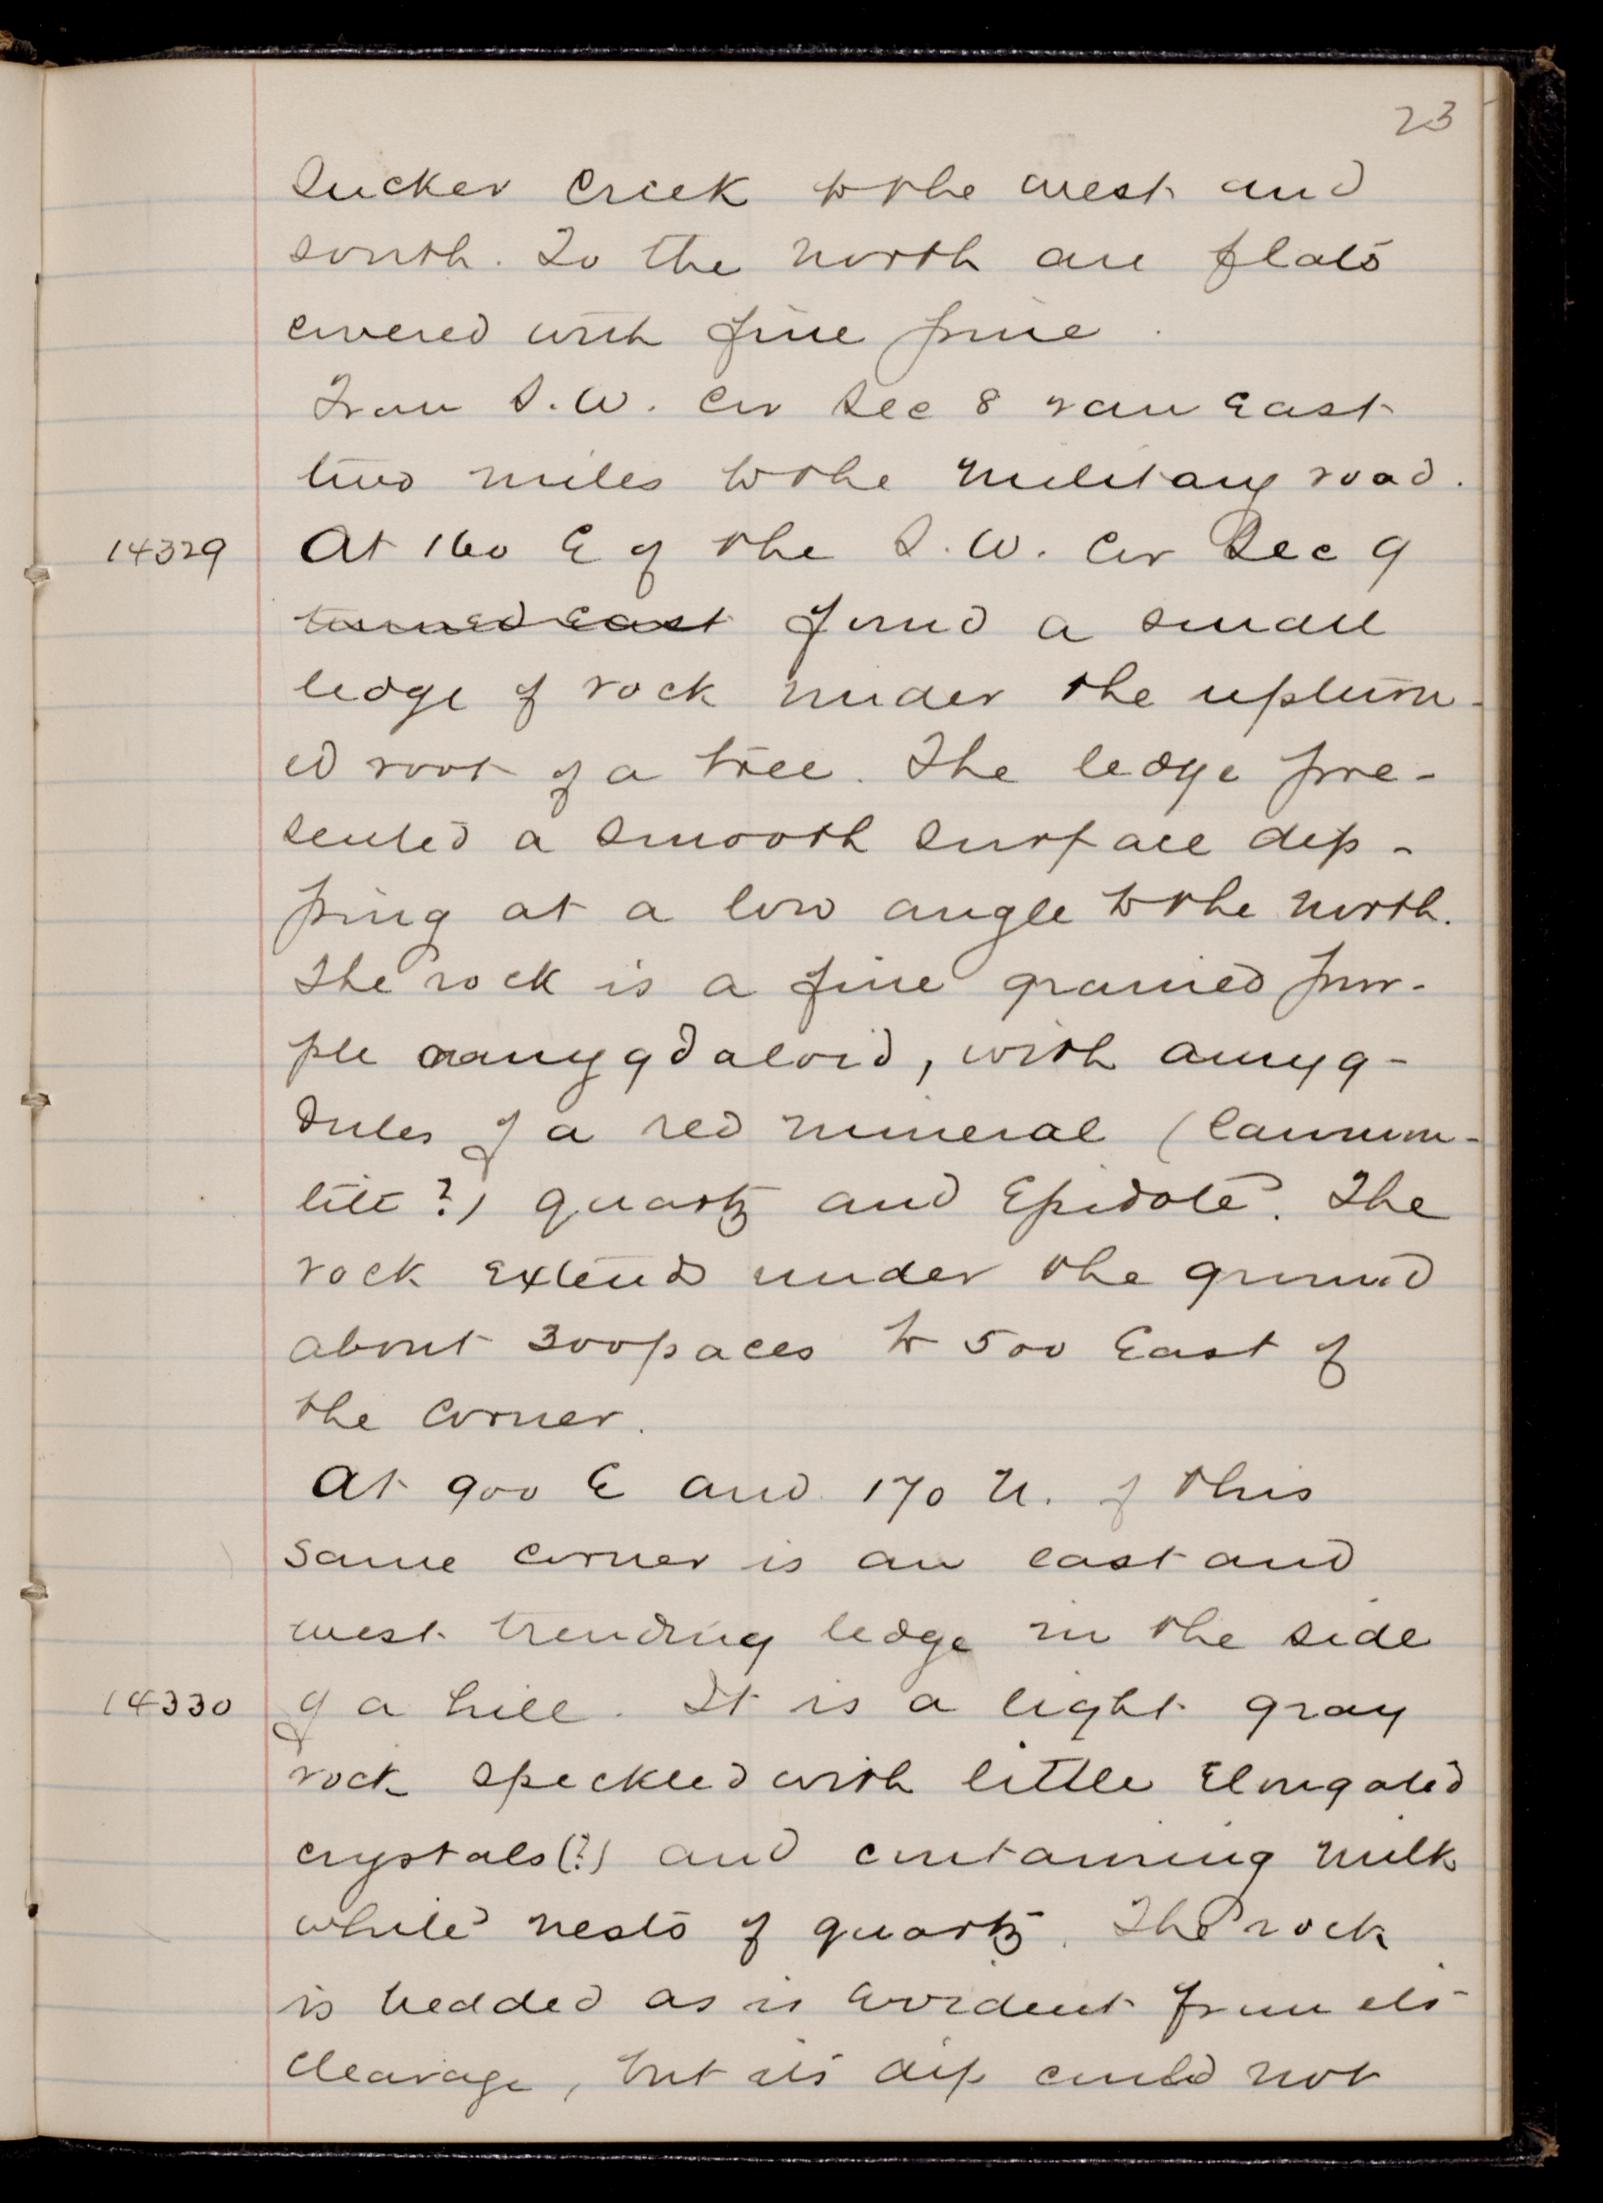 23
Sucker Creek to the west and
south. To the north are flats
covered with fine pine.
From S.W. Cor Sec 8 ran East
two miles to the Military road.
14329 At 160 E of the S.W. Cor Sec 9
turned East found a small
ledge of rock under the upturn-
ed root of a tree. The ledge pre-
sented a smooth surface dip-
ping at a low angle to the north.
The rock is a fine grained pur-
ple amygdaloid, with amyg-
dules of a red mineral (laumon-
tite?) quartz and Epidote. The
rock extends under the ground
about 300 paces to 500 East of
the corner.
At 900 E and 170 N. of this
same corner is an east and
west trending ledge in the side
14330 of a hill. It is a light gray
rock speckled with little Elongated
crystals(?) and containing milk
white nests of quartz. The rock
is bedded as is evident from its
cleavage, but its dip could not